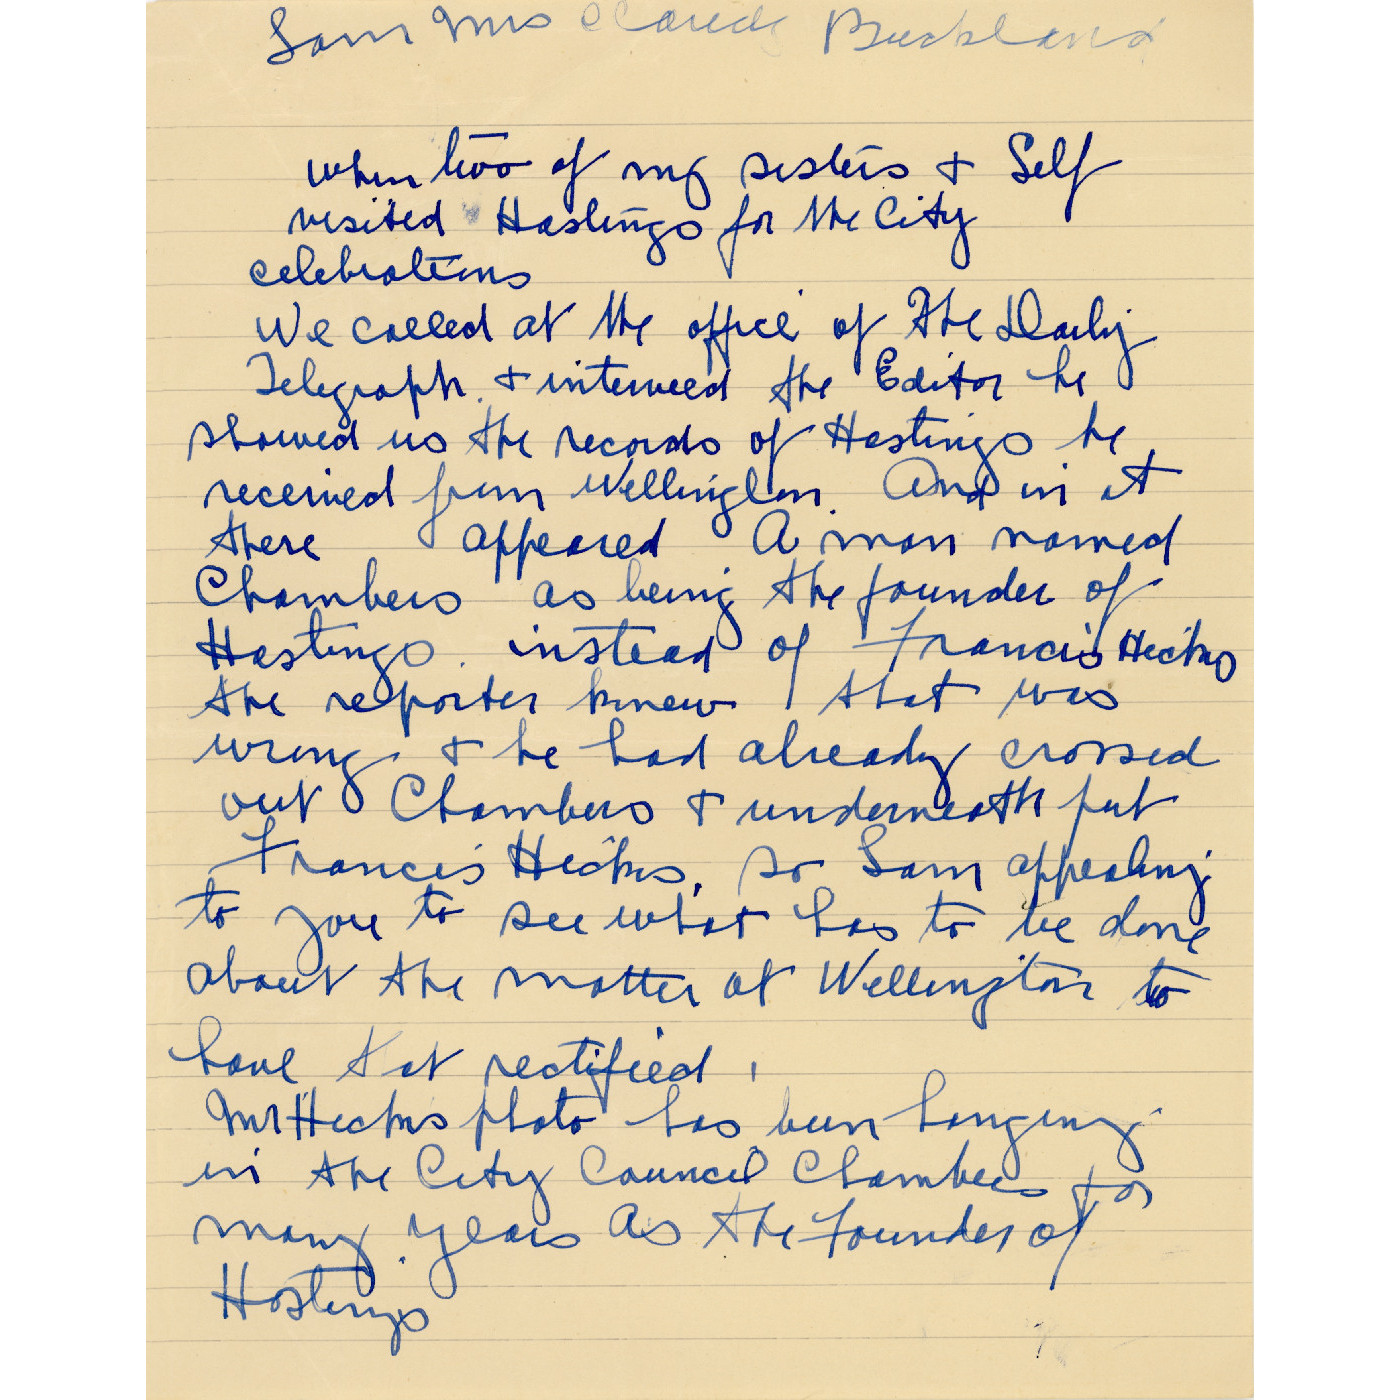 I am Mrs Claude Buckland
when two of my sisters & Self
visited Hastings for the City
celebrations
We called at the office of The Daily
Telegraph. & interveed the Editor he
showed us the records of Hastings he
received from Wellington. And in it
there appeared A man named
Chambers as being the founder of
Hastings. instead of Francis Hicks
the reporter knew that was
wrong. & he had already crossed
out Chambers & underneath put
Francis Hicks, so I am appealing
to you to see what has to be done
about the matter at Wellington to
have that rectified.
Mr Hicks photo has been hanging
in the City Council Chambers for
many years As the Founder of
Hastings